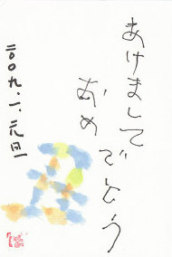 あけまして
おめでとう
二〇〇九.一.元旦